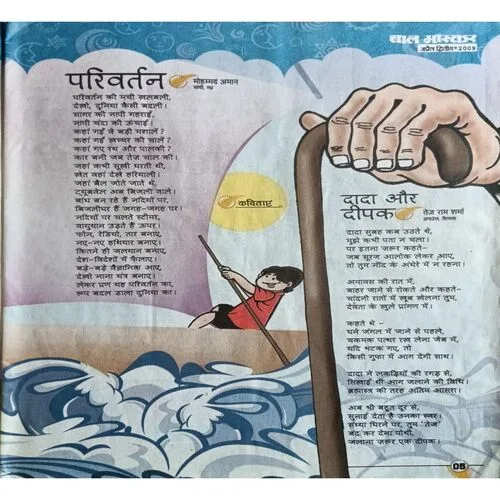 बाल भास्कर
अप्रैल द्वितीय 2009
परिवर्तन
मोहम्मद अमान
परिवर्तन की मची खलबली,
देखो, दुनिया कैसी बदली।
सागर की नापी गहराई,
नापी चंदा की ऊंचाई।
कहां गईं वे बड़ी मशालें?
कहां गईं खच्चर की चालें?
कहां गए रथ और पालकी?
कार बनी जब तेज़ चाल की।
जहां कभी सूखी धरती थी,
खेत वहां देखे हरियाली।
जहां बैल जोते जाते थे,
ट्यूबवेल अब बिजली वाले।
बांध बन रहे हैं नदियों पर,
बिजलीघर हैं जगह-जगह पर।
नदियों पर चलते स्टीमर,
वायुयान उड़ते हैं ऊपर।
फोन, रेडियो, तार बनाए,
नए-नए हथियार बनाए।
कितने ही जलयान बनाए,
देश-विदेशों में फैलाए।
बड़े-बड़े वैज्ञानिक आए,
देखो नाना यंत्र बनाए।
लेकर प्रण यह परिवर्तन का,
रूप बदल डाला दुनिया का।
कविताएं
दादा और
दीपक
तेज राम शर्मा
अनाडेल, शिमला
दादा सुबह कब उठते थे,
मुझे कभी पता न चला।
पर इतना ज़रूर कहते-
जब सूरज आलोक लेकर आए,
तो तुम नींद के अंधेरे में न रहना।
अमावस की रात में,
बाहर जाने से रोकते और कहते-
चांदनी रातों में खूब खेलना तुम,
देवता के खुले प्रांगण में।
कहते थे -
घने जंगल में जाने से पहले,
चकमक पत्थर रख लेना जेब में,
यदि भटक गए, तो
किसी गुफा में आग देगी साथ।
दादा ने लकड़ियों की रगड़ से,
सिखाई थी आग जलाने की विधि।
ब्रह्मास्त्र की तरह अंतिम आसरा।
अब भी बहुत दूर से,
सुनाई देता है उनका स्वर।
संध्या घिरने पर, तुम 'तेज'
बंद कर देना पोथी,
जलाना ज़रूर एक दीपक।
05